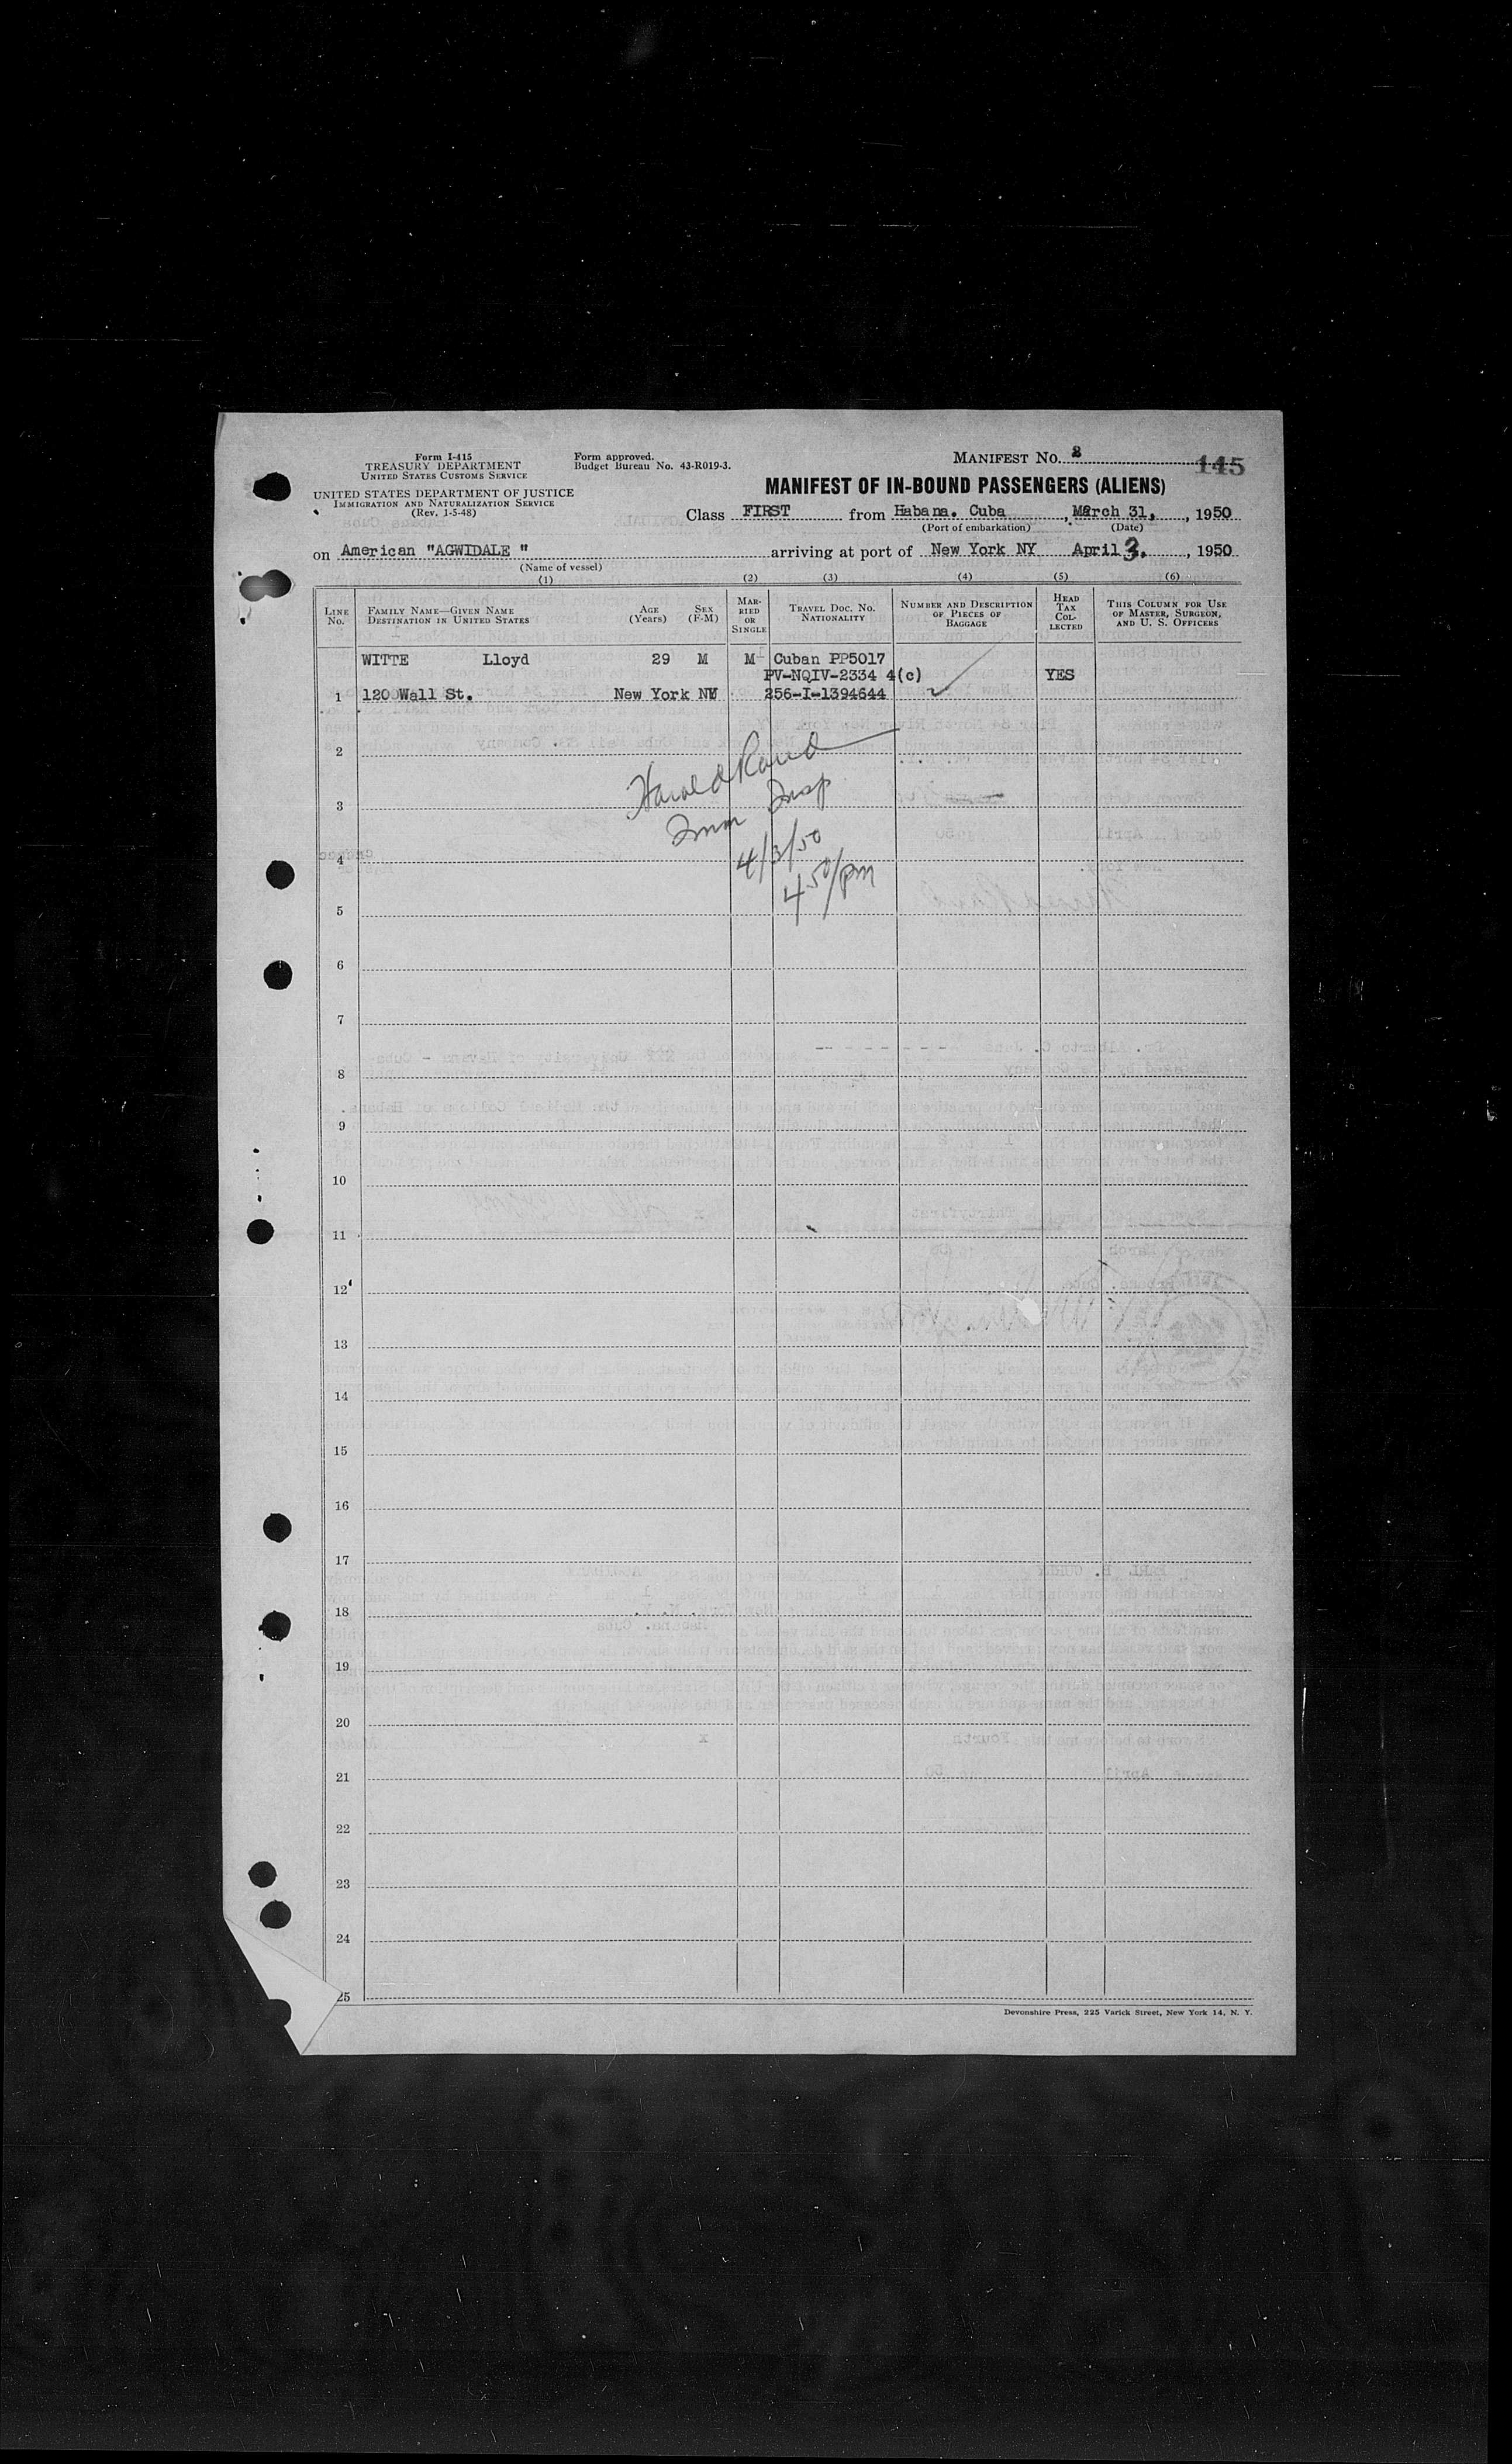 Form I-415
TREASURY DEPARTMENT
UNITED STATES CUSTOMS SERVICE
UNITED STATES DEPARTMENT OF JUSTICE
IMMIGRATION AND NATURALIZATION SERVICE
(Rev. 1-5-48)
Form approved.
Budget Bureau No. 43-R019-3.
MANIFEST NO. 2
145
MANIFEST OF IN-BOUND PASSENGERS (ALIENS)
Class FIRST from Habana. Cuba, March 31, 1950
(Port of embarkation) (Date)
on American "AGWIDALE " arriving at port of New York NY April 3. , 1950
(Name of vessel)
(1) (2) (3) (4) (5) (6)
LINE NO.
FAMILY NAME—GIVEN NAME
DESTINATION IN UNITED STATES
AGE (Years)
SEX (F-M)
MARRIED OR SINGLE
TRAVEL DOC. NO.
NATIONALITY
NUMBER AND DESCRIPTION OF PIECES OF BAGGAGE
HEAD TAX COLLECTED
THIS COLUMN FOR USE OF MASTER, SURGEON, AND U. S. OFFICERS
WITTE Lloyd 29 M M Cuban PP5017
PV-NQIV-2334 4(c) YES
1 120 Wall St. New York NY 256-I-1394644
2
Harold Rand
3
Imm Insp
4
4/3/50
4 50/pm
5
6
7
8
9
10
11
12
13
14
15
16
17
18
19
20
21
22
23
24
25
Devonshire Press, 225 Varick Street, New York 14, N. Y.